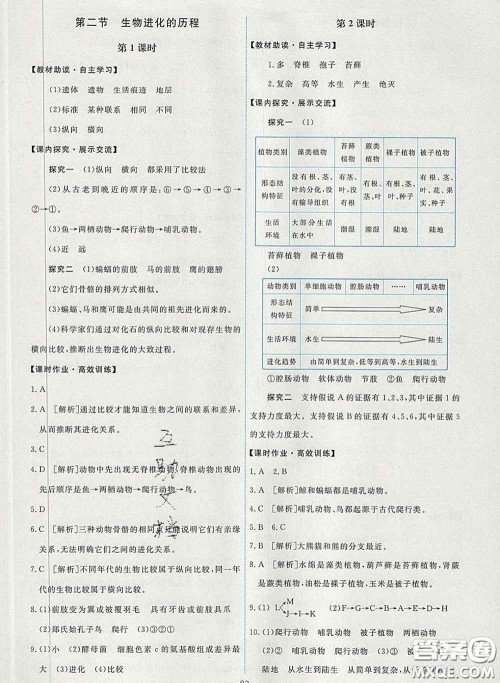 第二节　生物进化的历程
第1课时
【教材助读·自主学习】
(1)遗体　遗物　生活痕迹　地层
(2)标准　某种联系　相同　不同
(3)纵向　横向
【课内探究·展示交流】
探究一　(1)纵向　横向　都采用了比较法
(2)从古老到晚近的顺序是:⑥→⑤→④→③→
②→①。
(3)鱼→两栖动物→爬行动物→哺乳动物。
(4)近　远
探究二　(1)蝙蝠的前肢　马的前肢　鹰的翅膀
(2)它们骨骼的排列方式基本一致。
(3)蝙蝠、马和鹰可能是由共同的祖先进化而来的。
(4)科学家们通过对化石的纵向比较和对现存生物的
横向比较,推断出生物进化的大致过程。
【课时作业·高效训练】
1.A　[解析]通过比较才能知道生物之间的联系和差异,从
而推断其进化关系。
2.D
3.C　[解析]动物中先出现无脊椎动物,脊椎动物出现的
先后顺序是鱼→两栖动物→爬行动物→鸟。
4.A
5.D
6.C　[解析]三种动物骨骼的相同点只能说明它们有亲
缘关系,不能说明进化关系。
7.D　[解析]不同年代的生物比较属于纵向比较,同一年
代的生物比较属于横向比较。
8.C
9.(1)前肢变为翼　被覆羽毛　具有牙齿　有尾椎骨
(2)郑氏始孔子鸟　爬行　(3)①②③
10.(1)小　(2)酵母菌　细胞色素c的氨基酸组成差异最
大　(3)进化　(4)①②③
第2课时
【教材助读·自主学习】
1.多　脊椎　孢子　苔藓
2.复杂　高等　水生　产生　绝灭
【课内探究·展示交流】
探究一　(1)
植物类别　藻类植物　苔藓植物　蕨类植物　裸子植物　被子植物
形态结构特征　没有根、茎、叶的分化,没有输导组织　有茎、叶　有根、茎、叶　有根、茎、叶,种子　有根、茎、叶、花、果实,种子
生活环境　大部分生活在水中　潮湿　潮湿　陆地　陆地
苔藓植物　裸子植物
(2)
动物类别　单细胞动物　腔肠动物　……　哺乳动物
形态结构特征　简单　复杂
生活环境　水生　陆生
进化趋势　由简单到复杂,低等到高等,水生到陆生
①腔肠动物　软体动物　节肢　②鱼　爬行动物
探究二　支持假说A的证据有1,2,3,其中证据1的
支持力度最大。支持假说B的证据有4,5,6,其中证据5的
支持力度最大。
【课时作业·高效训练】
1.A　2.B
3.A　[解析]鲸和蝙蝠都是哺乳动物。
4.D　[解析]鸟和哺乳动物、鸟都起源于古代爬行动物。
5.B　6.C
7.D　[解析]大熊猫和熊的分支最近。
8.A　[解析]水绵是藻类植物,葫芦藓是苔藓植物,肾蕨
是蕨类植物,油松是裸子植物,玉米是被子植物。
(2)F→G→E→D→H→C
(3)爬行动物　哺乳动物　两栖动物
10.(1)简单　(2)爬行动物　(3)晚　(4)水生　陆生
陆地　从水生到陆生　从简单到复杂　从低等到高等
答案圈